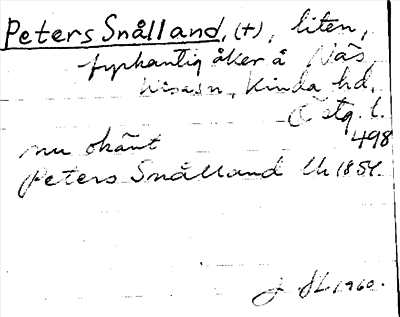 Peters Snålland, (+), liten,
fyrkantig åker å Näs,
Kinda hd,
Östg. l.
498
nu okänt
Peters Snålland Lh 1854.
1960.